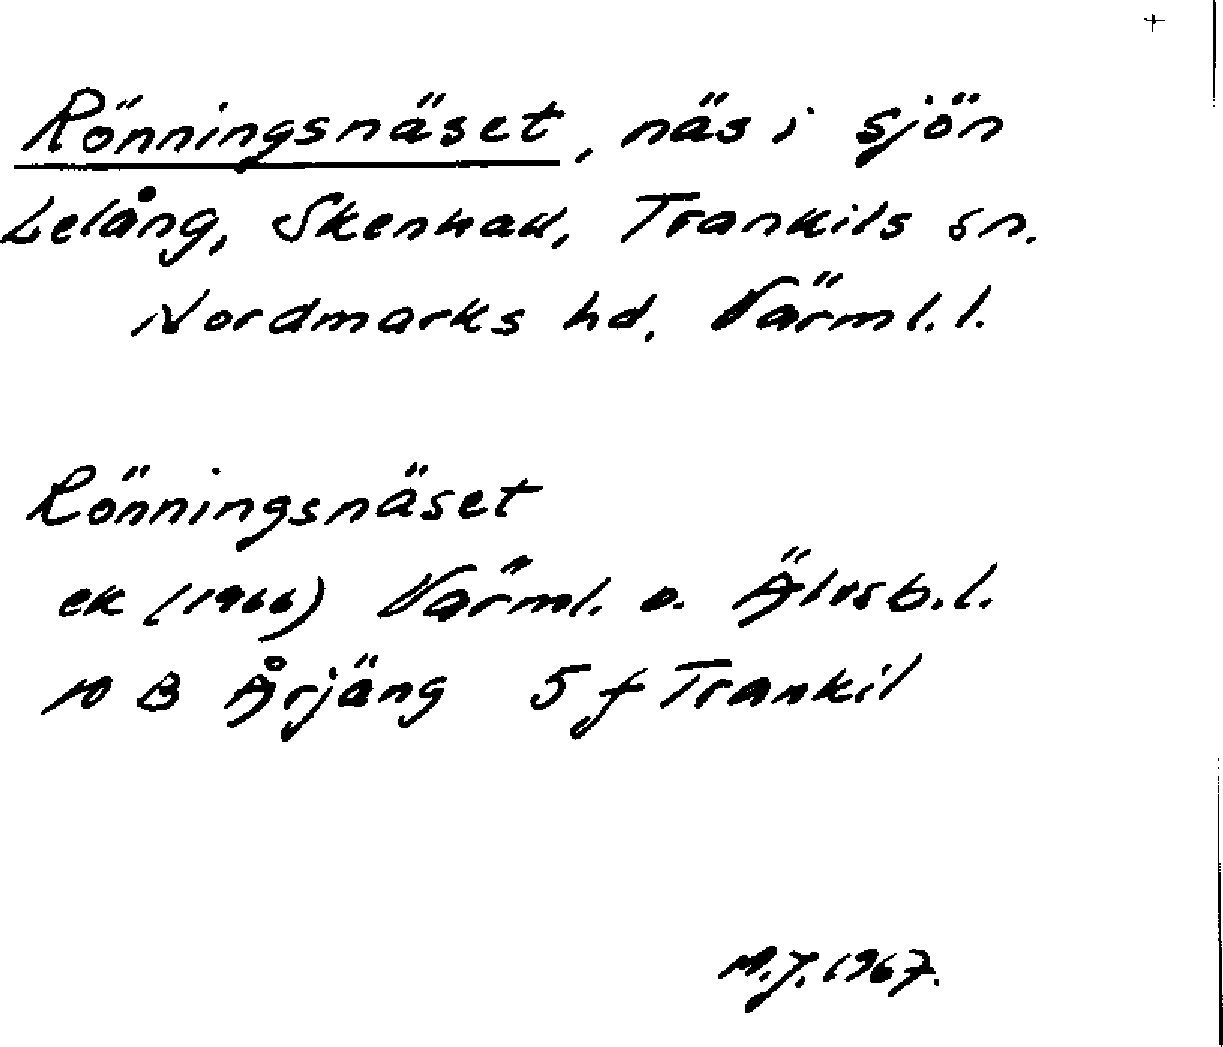 +
Rönningsnäset, näs i sjön
Lelång, Skenhall, Trankils sn.
Nordmarks hd. Värml. l.
Rönningsnäset
ek (1966) Värml. o. Älvsb. l.
10 B Årjäng 5 f Trankil
M.J. 1967.